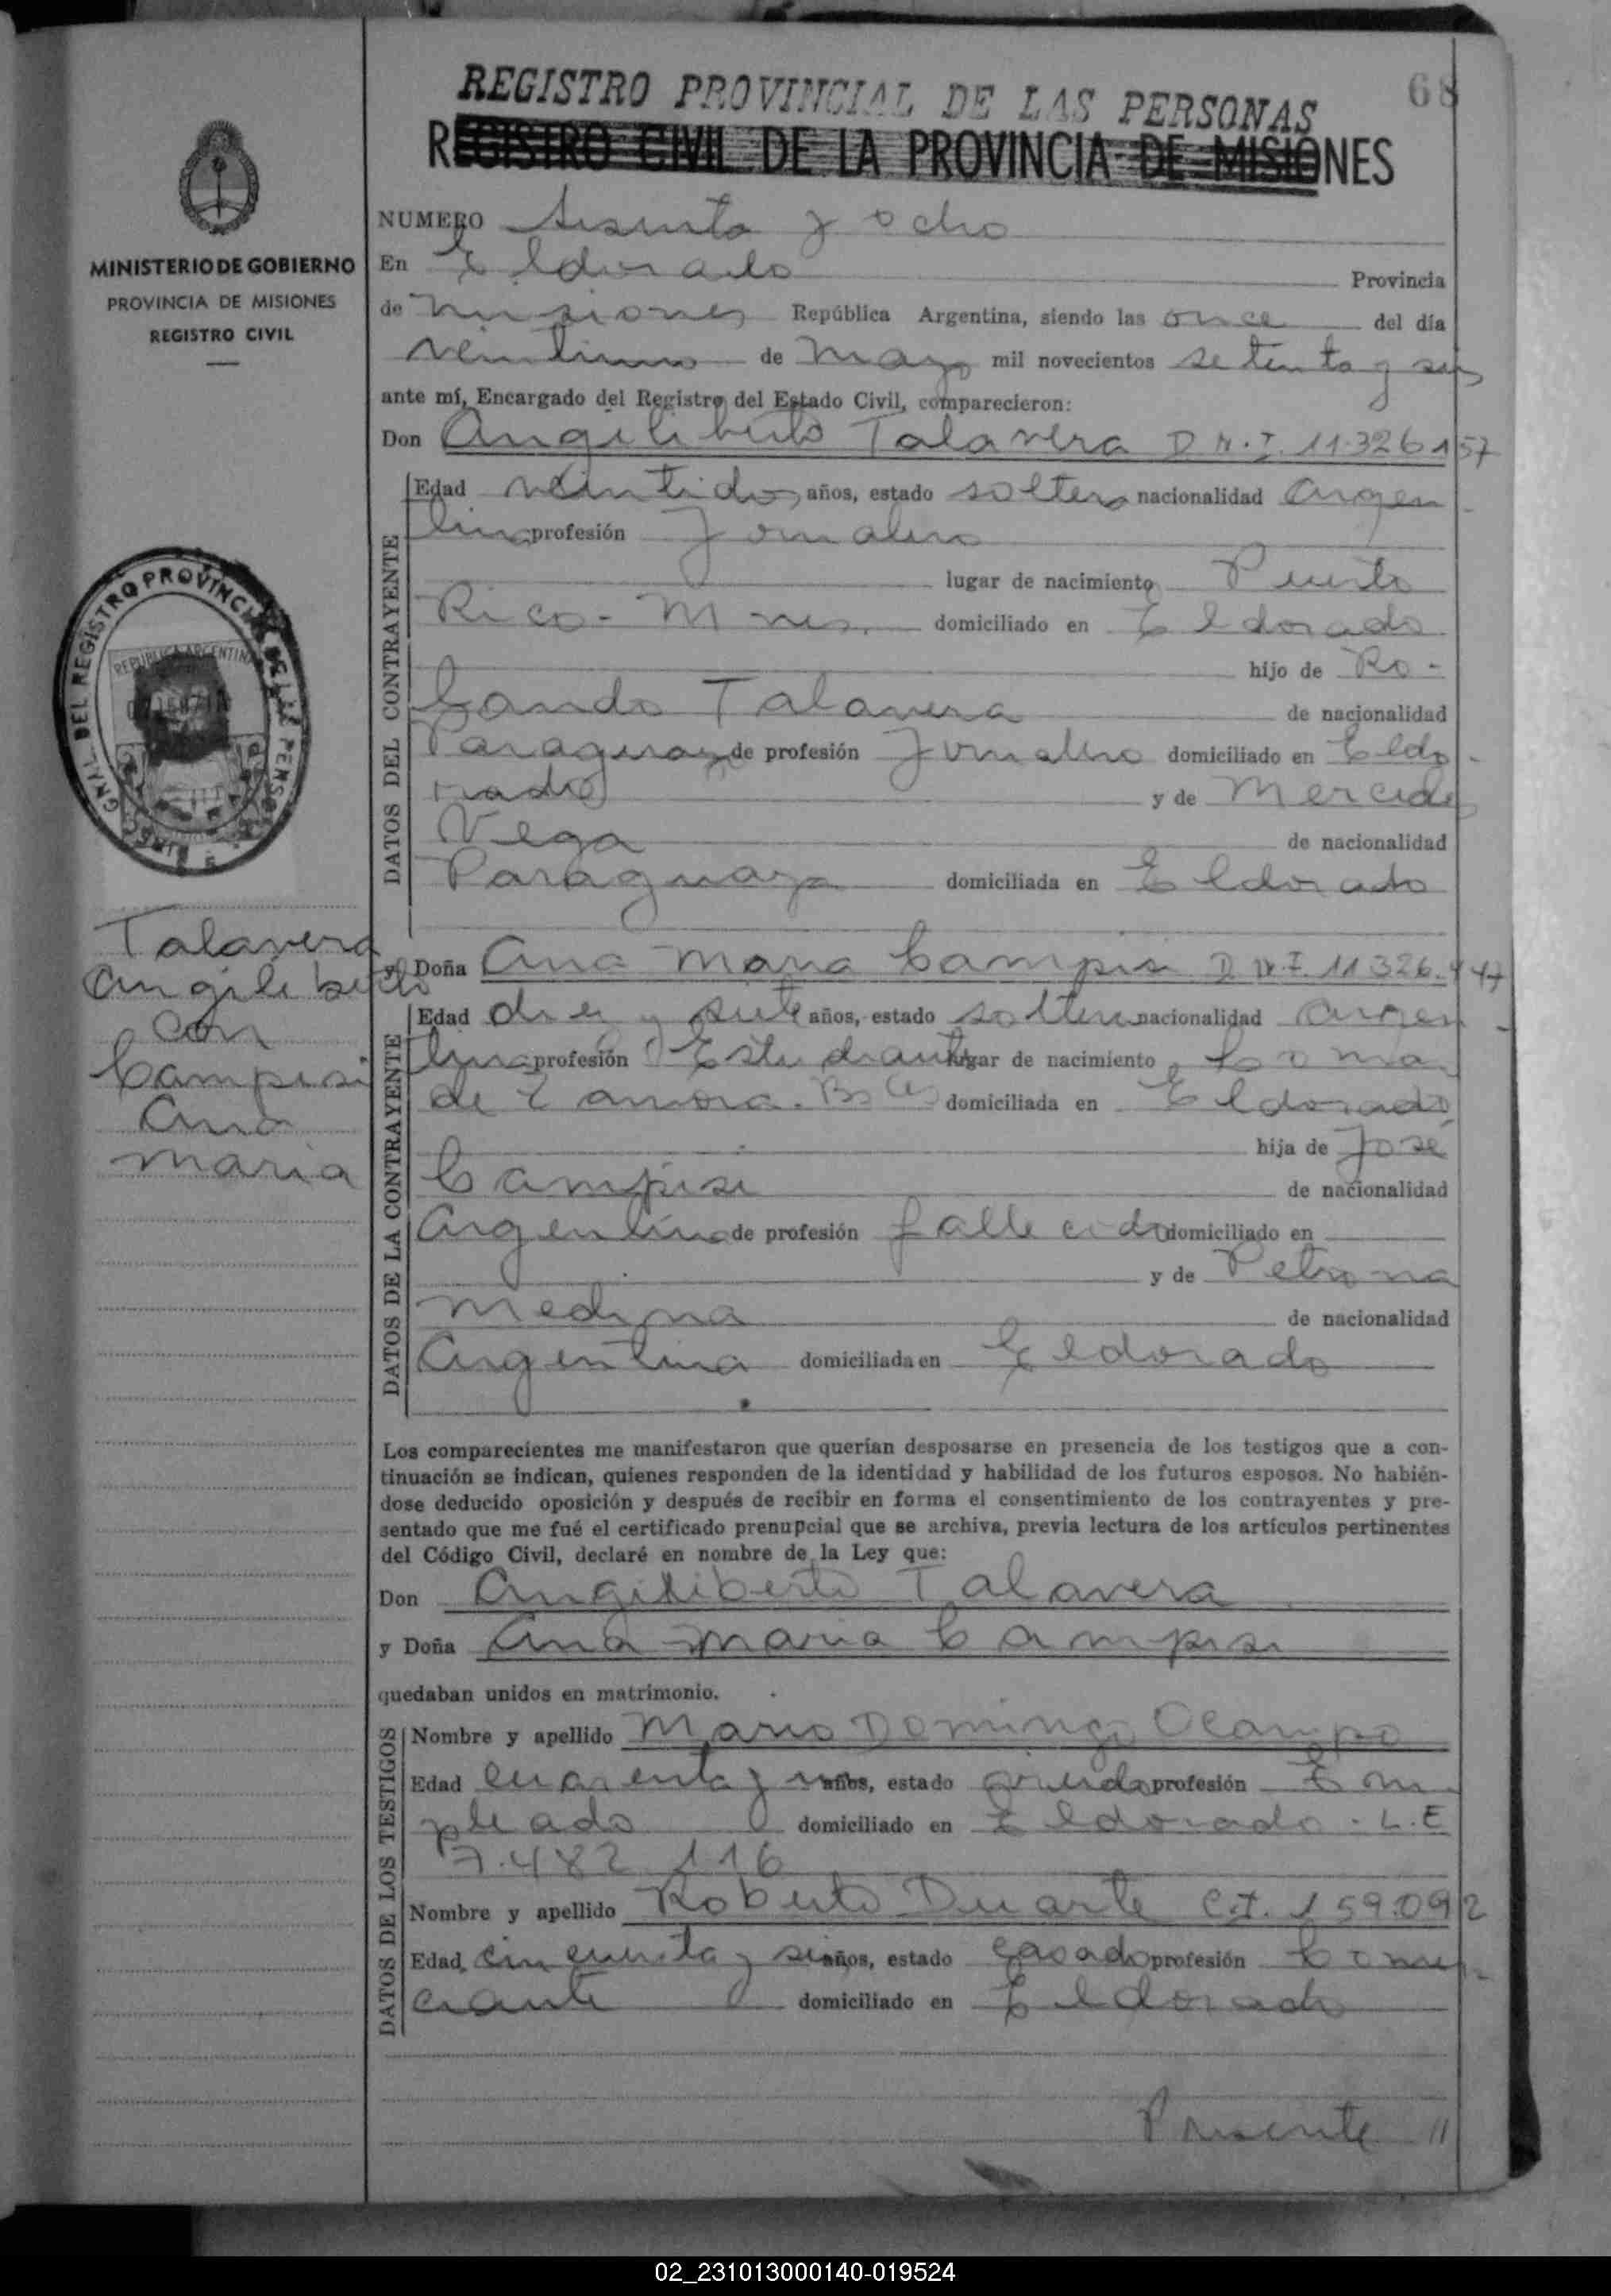 68
REGISTRO PROVINCIAL DE LAS PERSONAS
REGISTRO CIVIL DE LA PROVINCIA DE MISIONES
MINISTERIO DE GOBIERNO
PROVINCIA DE MISIONES
REGISTRO CIVIL
GRAL DEL REGISTRO PROVINCIAL DE LAS PERS
REPUBLICA ARGENTINA
Talavera
Angiliberto
con
Campisi
Ana
Maria
NUMERO Sesenta y ocho
En Eldorado Provincia
de Misiones República Argentina, siendo las once del día
veintiuno de Mayo mil novecientos setenta y seis
ante mí, Encargado del Registro del Estado Civil, comparecieron:
Don Angiliberto Talavera D.N.I. 11.326.157
DATOS DEL CONTRAYENTE
Edad veintidos años, estado soltero nacionalidad Argen
tina profesión Jornalero
lugar de nacimiento Puerto
Rico - Mnes. domiciliado en Eldorado
hijo de Ro-
Candо Talavera de nacionalidad
Paraguaya de profesión Jornalero domiciliado en Eldo-
rado y de Mercedes
Vega de nacionalidad
Paraguaya domiciliada en Eldorado
y Doña Ana Maria Campisi D.N.I. 11.326.447
DATOS DE LA CONTRAYENTE
Edad diez y siete años, estado soltera nacionalidad Argen-
tina profesión Estudiante lugar de nacimiento Loma
de Zamora. Bs As domiciliada en Eldorado
hija de José
Campisi de nacionalidad
Argentina de profesión fallecido domiciliado en
y de Petrona
Medina de nacionalidad
Argentina domiciliada en Eldorado
Los comparecientes me manifestaron que querían desposarse en presencia de los testigos que a con-
tinuación se indican, quienes responden de la identidad y habilidad de los futuros esposos. No habién-
dose deducido oposición y después de recibir en forma el consentimiento de los contrayentes y pre-
sentado que me fué el certificado prenupcial que se archiva, previa lectura de los artículos pertinentes
del Código Civil, declaré en nombre de la Ley que:
Don Angiliberto Talavera
y Doña Ana Maria Campisi
quedaban unidos en matrimonio.
DATOS DE LOS TESTIGOS
Nombre y apellido Mario Domingo Ocampo
Edad cuarenta y años, estado profesión Em
pleado domiciliado en Eldorado - L.E
7.482.116
Nombre y apellido Roberto Duarte C.I. 159.092
Edad cincuenta y seis años, estado casado profesión Comer-
ciante domiciliado en Eldorado
Presente //
02_231013000140-019524